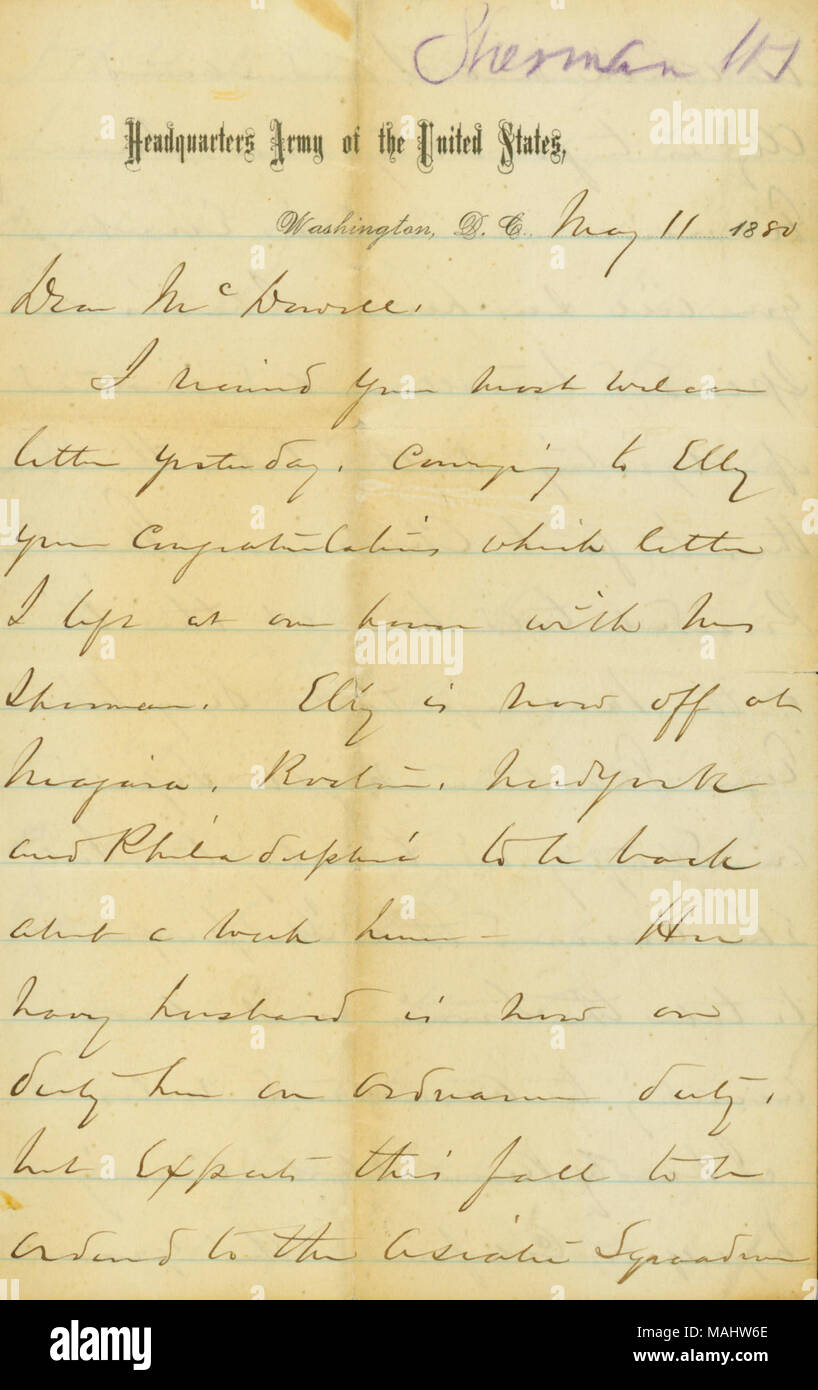 Sherman WT
Headquarters Army of the United States,
Washington, D. C. May 11 1880
Dear McDowell.
I received your most welcome
letter yesterday. Conveying to Elly
your Congratulations which letter
I left at our house with Mrs
Sherman. Elly is now off at
Niagara, Boston, New York
and Philadelphia to be back
about a week hence - Her
navy husband is now on
duty here on ordnance duty,
but Expects this fall to be
ordered to the Asiatic Squadron
alamy
Image ID: MAHW6E
www.alamy.com